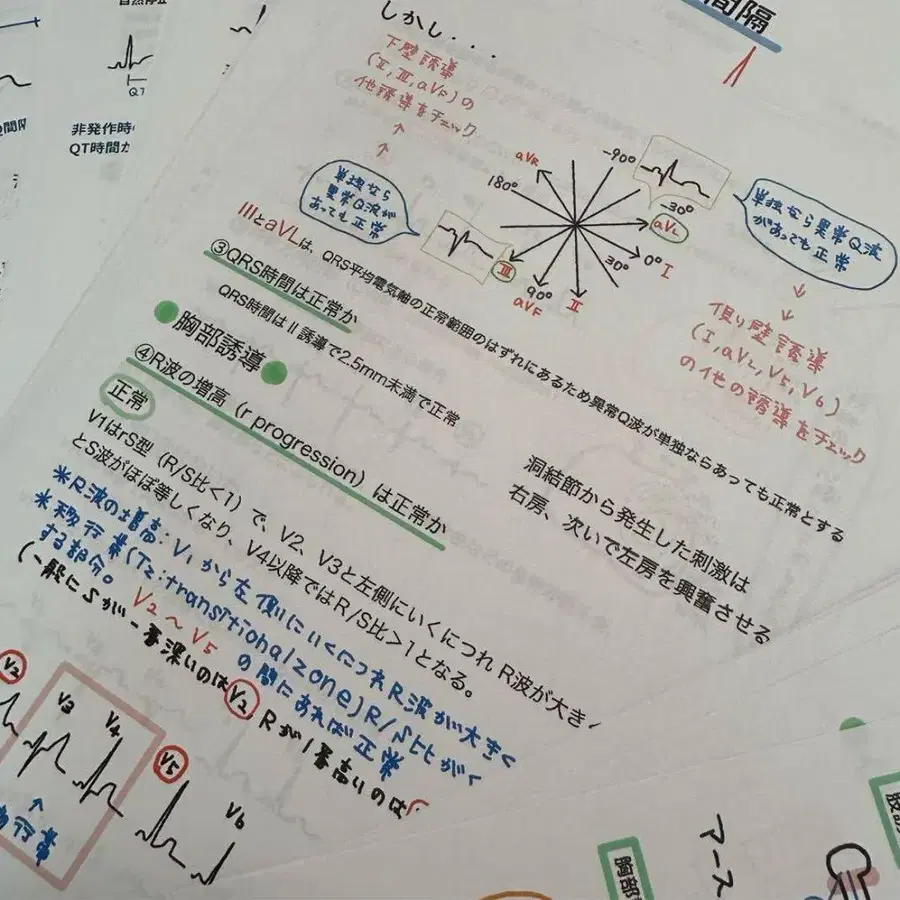 自然停止
QT
非発作時
QT時間が
間隔
しかし...
下壁誘導
(Ⅱ,Ⅲ,aVF)の
他誘導をチェック
単独なら
異常Q波が
あっても正常
aVR
-90°
180°
-30°
aVL
0° Ⅰ
30°
Ⅲ
90°
aVF
Ⅱ
単独なら異常Q波
があっても正常
側壁誘導
(Ⅰ,aVL,V5,V6)
の他の誘導をチェック
ⅢとaVLは、QRS平均電気軸の正常範囲のはずれにあるため異常Q波が単独ならあっても正常とする
③QRS時間は正常か
QRS時間はⅡ誘導で2.5mm未満で正常
胸部誘導
④R波の増高(r progression)は正常か
正常
V1はrS型(R/S比<1)で、V2、V3と左側にいくにつれR波が大き
とS波がほぼ等しくなり、V4以降ではR/S比>1となる。
洞結節から発生した刺激は
右房、次いで左房を興奮させる
*R波の増高:V1から左側にいくにつれR波が大きく
*移行帯(Tz:transitional zone)R/S比がく
する部分。V2~V5の間にあれば正常
(一般にSが一番深いのはV2,Rが1番高いのは
V2
V3
V4
V5
V6
移行帯
アース
胸部